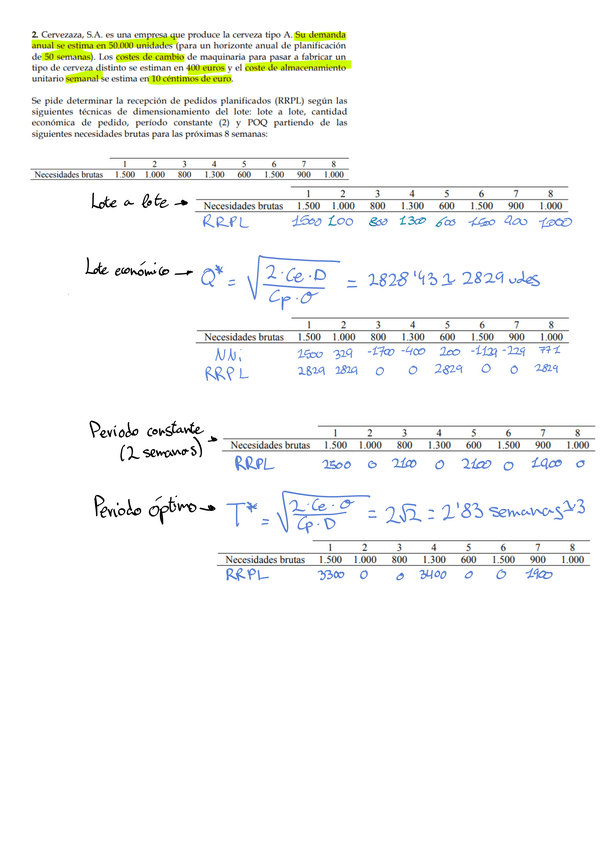 2. Cervezaza, S.A. es una empresa que produce la cerveza tipo A. Su demanda
anual se estima en 50.000 unidades (para un horizonte anual de planificación
de 50 semanas). Los costes de cambio de maquinaria para pasar a fabricar un
tipo de cerveza distinto se estiman en 400 euros y el coste de almacenamiento
unitario semanal se estima en 10 céntimos de euro.
Se pide determinar la recepción de pedidos planificados (RRPL) según las
siguientes técnicas de dimensionamiento del lote: lote a lote, cantidad
económica de pedido, período constante (2) y POQ partiendo de las
siguientes necesidades brutas para las próximas 8 semanas:
1 2 3 4 5 6 7 8
Necesidades brutas 1.500 1.000 800 1.300 600 1.500 900 1.000
Lote a lote →
1 2 3 4 5 6 7 8
Necesidades brutas 1.500 1.000 800 1.300 600 1.500 900 1.000
RRPL 1500 100 800 1300 600 1500 900 1000
Lote económico → Q* = √(2·Ce·D / Cp·σ) = 2828'43 ≃ 2829 udes
1 2 3 4 5 6 7 8
Necesidades brutas 1.500 1.000 800 1.300 600 1.500 900 1.000
NNi 1500 329 -1700 -400 200 -1129 -229 771
RRPL 2829 2829 0 0 2829 0 0 2829
Periodo constante
(2 semanas) →
1 2 3 4 5 6 7 8
Necesidades brutas 1.500 1.000 800 1.300 600 1.500 900 1.000
RRPL 2500 0 2100 0 2100 0 1900 0
Periodo óptimo → T* = √(2·Ce·σ / Cp·D) = 2√2 = 2'83 semanas ≃ 3
1 2 3 4 5 6 7 8
Necesidades brutas 1.500 1.000 800 1.300 600 1.500 900 1.000
RRPL 3300 0 0 3400 0 0 1900